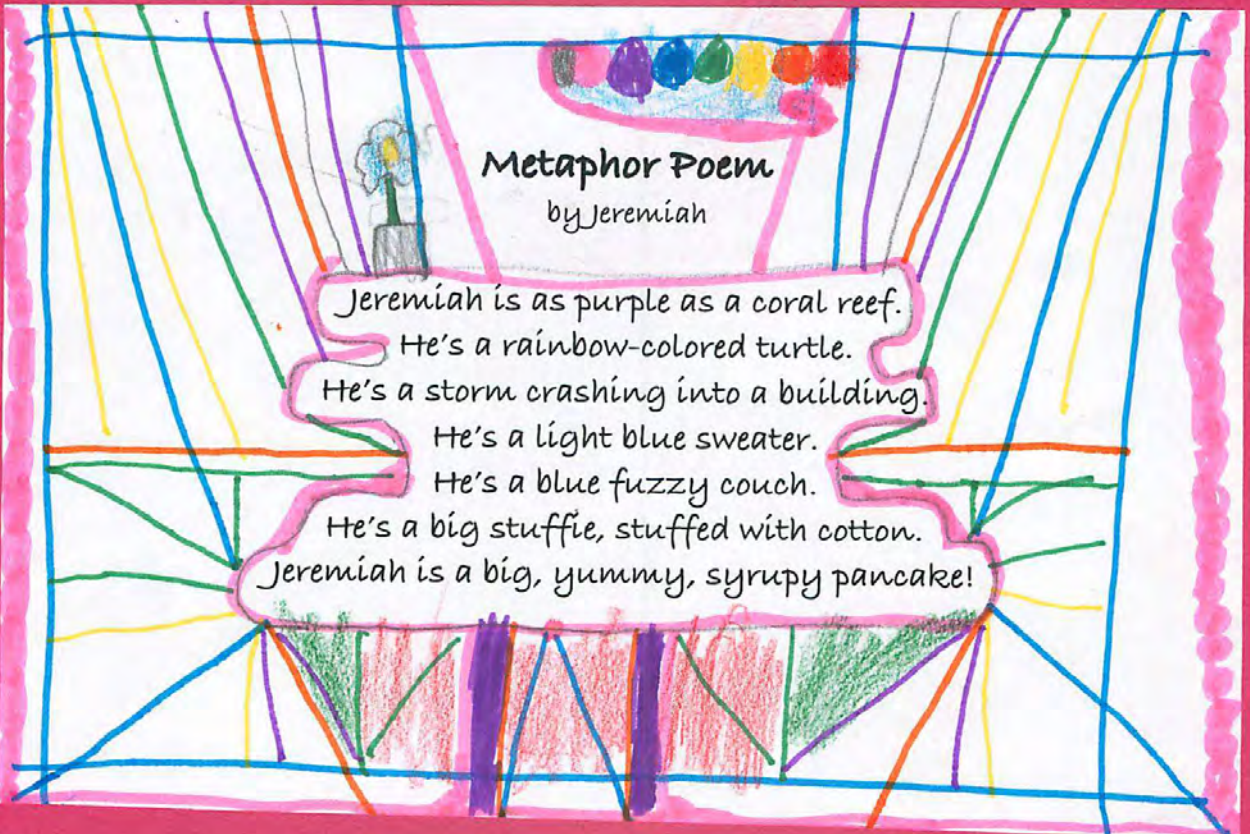 Metaphor Poem
by Jeremiah
Jeremiah is as purple as a coral reef.
He's a rainbow-colored turtle.
He's a storm crashing into a building.
He's a light blue sweater.
He's a blue fuzzy couch.
He's a big stuffie, stuffed with cotton.
Jeremiah is a big, yummy, syrupy pancake!